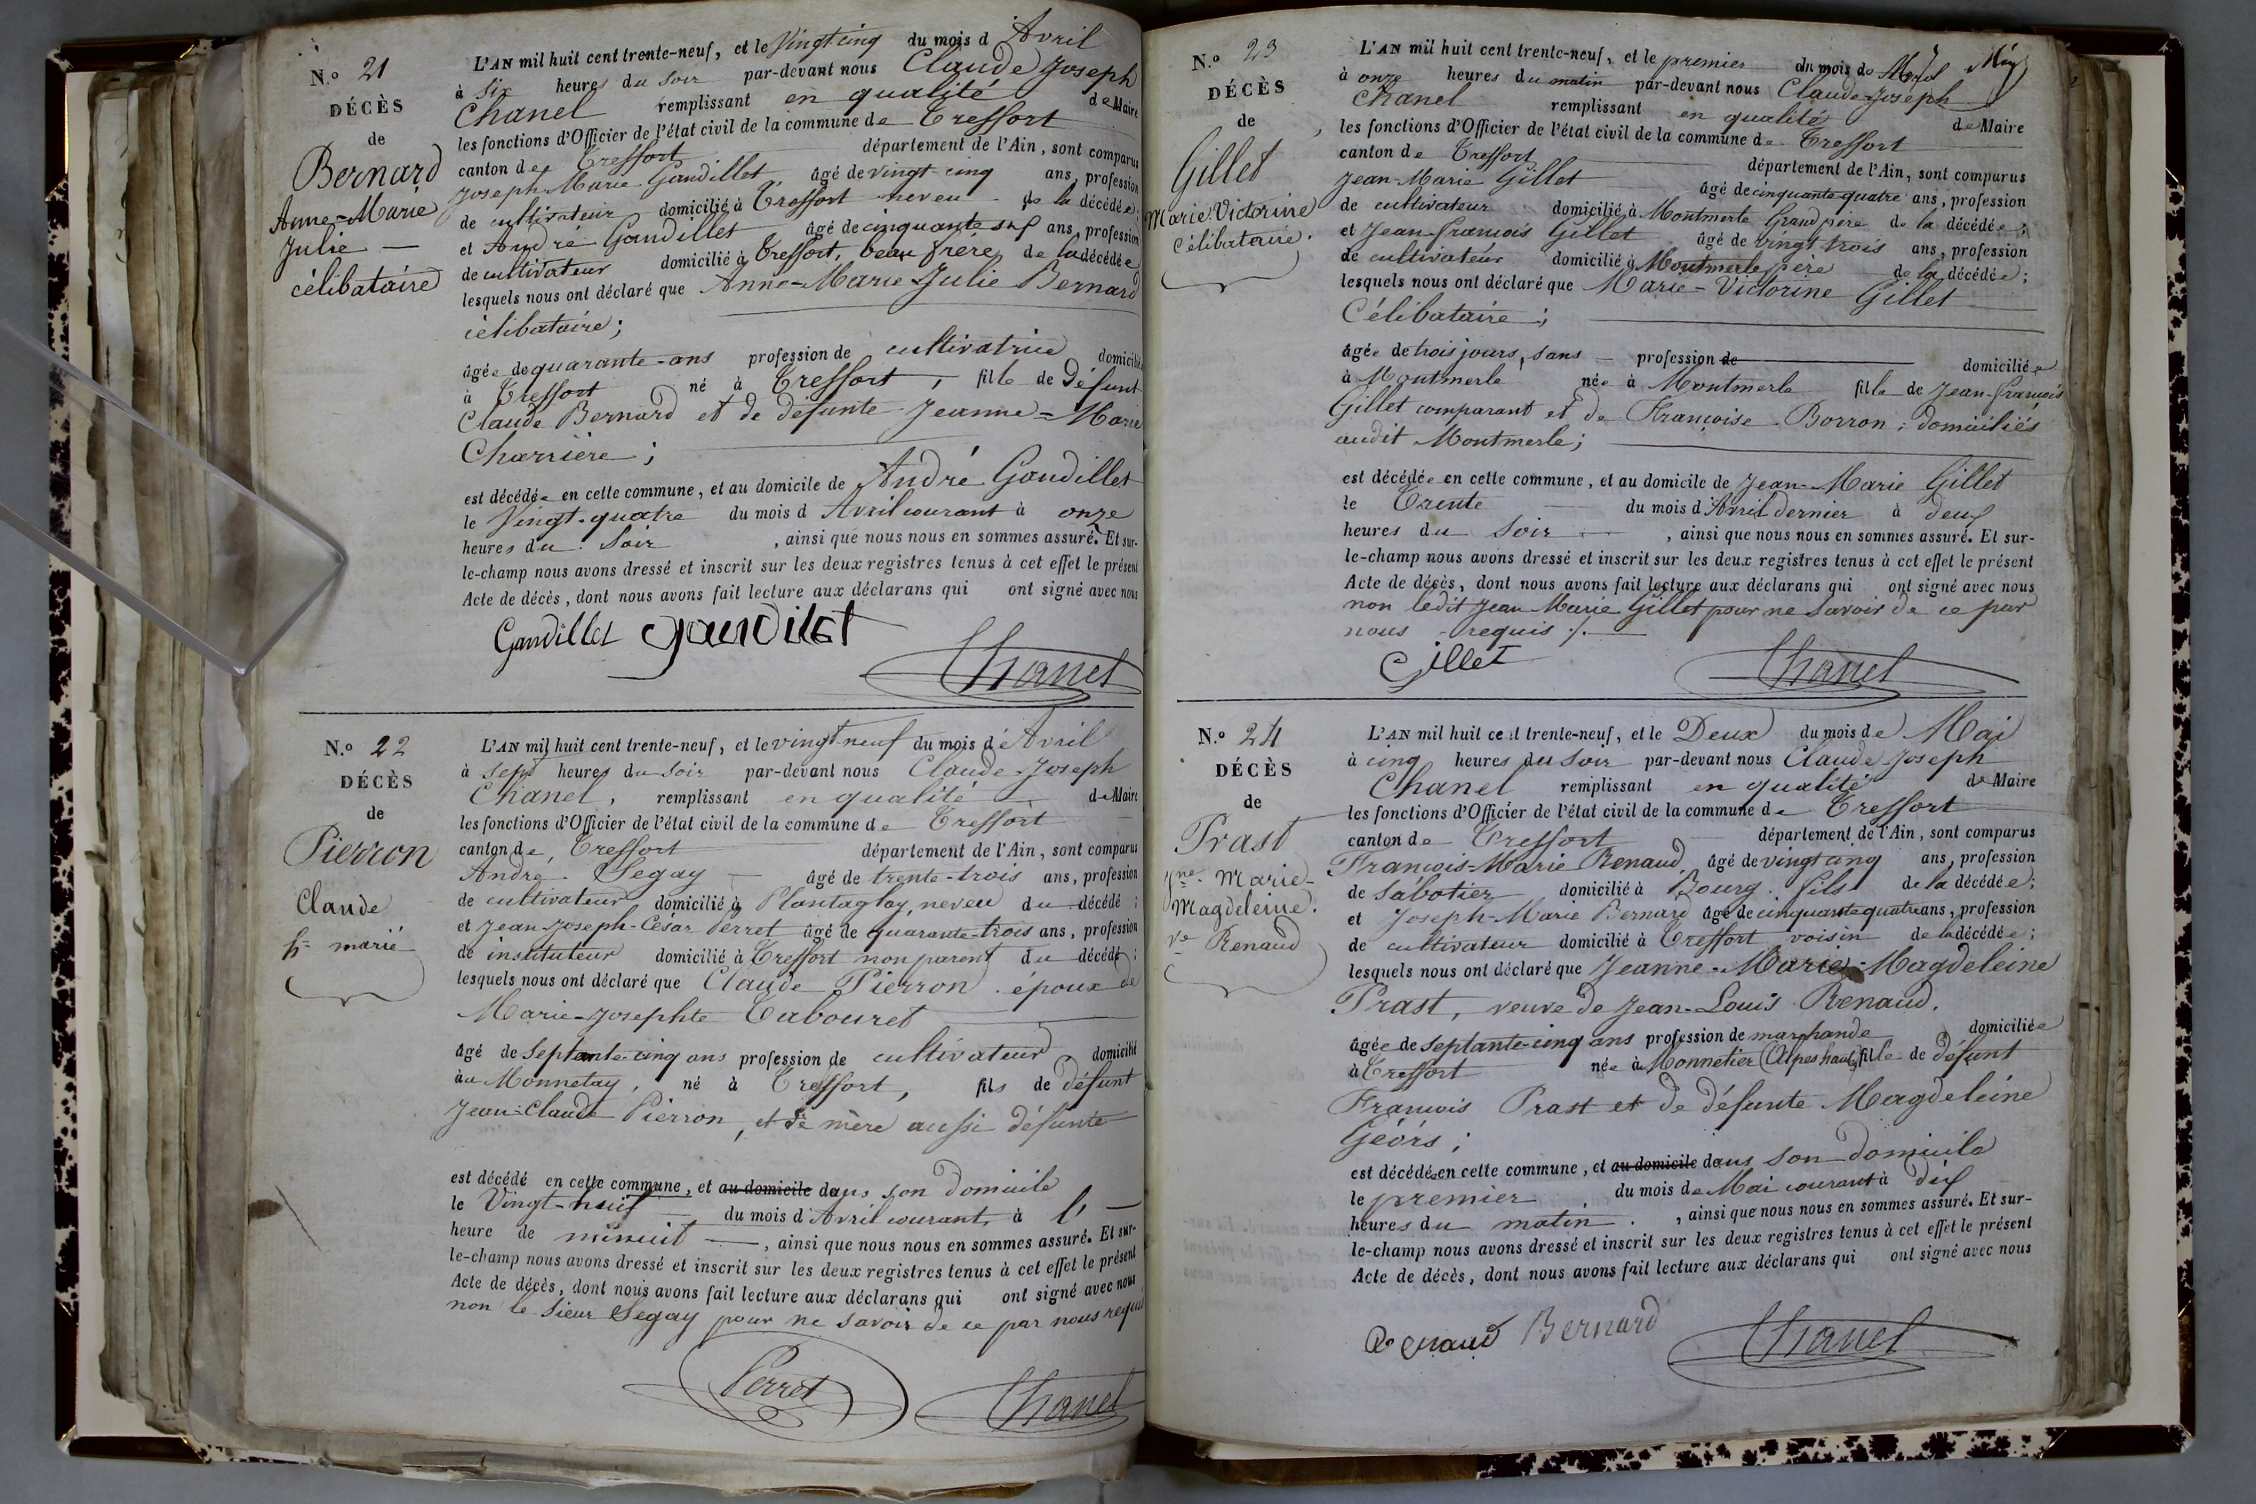 N.o 21
DÉCÈS
de
Bernard
Anne-Marie
Julie —
célibataire
L'AN mil huit cent trente-neuf, et le Vingt cinq du mois d'Avril
à six heures du soir par-devant nous Claude Joseph
Chanel remplissant en qualité de Maire
les fonctions d'Officier de l'état civil de la commune de Treffort
canton de Treffort département de l'Ain, sont comparus
Joseph-Marie Gaudillet âgé de vingt-cinq ans, profession
de cultivateur domicilié à Treffort neveu de la décédée;
et André Gaudillet âgé de cinquante six ans, profession
de cultivateur domicilié à Treffort, beau frère de la décédée
lesquels nous ont déclaré que Anne-Marie-Julie Bernard
célibataire;
âgée de quarante-ans profession de cultivatrice domicilié
à Treffort né à Treffort, fille de défunt
Claude Bernard et de défunte Jeanne-Marie
Charrière;
est décédée en cette commune, et au domicile de André Gaudillet
le Vingt-quatre du mois d'Avril courant à onze
heures du soir, ainsi que nous nous en sommes assuré. Et sur-
le-champ nous avons dressé et inscrit sur les deux registres tenus à cet effet le présent
Acte de décès, dont nous avons fait lecture aux déclarans qui ont signé avec nous
Gaudillet gaudilet
Chanel
N.o 22
DÉCÈS
de
Pierron
Claude
h= marié
L'AN mil huit cent trente-neuf, et le vingt neuf du mois d'Avril
à sept heures du soir par-devant nous Claude-Joseph
Chanel, remplissant en qualité de Maire
les fonctions d'Officier de l'état civil de la commune de Treffort
canton de Treffort département de l'Ain, sont comparus
André Segay — âgé de trente-trois ans, profession
de cultivateur domicilié à Plantaglay, neveu du décédé;
et Jean-Joseph-César Perret âgé de quarante-trois ans, profession
de instituteur domicilié à Treffort non parent du décédé;
lesquels nous ont déclaré que Claude Pierron époux de
Marie-Josephte Tabouret
âgé de septante-cinq ans profession de cultivateur domicilié
au Monnetay, né à Treffort, fils de défunt
Jean-Claude Pierron, et de mère aussi défunte
est décédé en cette commune, et au domicile dans son domicile
le Vingt-neuf du mois d'Avril courant, à l' —
heure de minuit —, ainsi que nous nous en sommes assuré. Et sur-
le-champ nous avons dressé et inscrit sur les deux registres tenus à cet effet le présent
Acte de décès, dont nous avons fait lecture aux déclarans qui ont signé avec nous
non le sieur Segay pour ne savoir de ce par nous requis
Perret Chanel
N.o 23
DÉCÈS
de
Gillet
Marie-Victorine
célibataire.
L'AN mil huit cent trente-neuf, et le premier du mois de
à onze heures du matin par-devant nous Claude-Joseph
Chanel remplissant en qualité de Maire
les fonctions d'Officier de l'état civil de la commune de Treffort
canton de Treffort département de l'Ain, sont comparus
Jean-Marie Gillet âgé de cinquante quatre ans, profession
de cultivateur domicilié à Montmerle Grand père de la décédée;
et Jean-françois Gillet âgé de vingt trois ans, profession
de cultivateur domicilié à Montmerle père de la décédée;
lesquels nous ont déclaré que Marie-Victorine Gillet
Célibataire;
âgée de trois jours, sans — profession de domiciliée
à Montmerle née à Montmerle fille de Jean-françois
Gillet comparant et de Françoise Borron, domiciliés
audit Montmerle;
est décédée en cette commune, et au domicile de Jean-Marie Gillet
le Trente du mois d'Avril dernier à deux
heures du soir, ainsi que nous nous en sommes assuré. Et sur-
le-champ nous avons dressé et inscrit sur les deux registres tenus à cet effet le présent
Acte de décès, dont nous avons fait lecture aux déclarans qui ont signé avec nous
non ledit Jean Marie Gillet pour ne savoir de ce par
nous requis ./.
Gillet Chanel
N.o 24
DÉCÈS
de
Prast
Jne-Marie-
Magdeleine.
ve Renaud
L'AN mil huit cent trente-neuf, et le Deux du mois de Mai
à cinq heures du soir par-devant nous Claude Joseph
Chanel remplissant en qualité de Maire
les fonctions d'Officier de l'état civil de la commune de Treffort
canton de Treffort département de l'Ain, sont comparus
François-Marie Renaud âgé de vingt cinq ans, profession
de sabotier domicilié à Bourg. fils de la décédée;
et Joseph-Marie Bernard âgé de cinquante quatre ans, profession
de cultivateur domicilié à Treffort voisin de la décédée;
lesquels nous ont déclaré que Jeanne-Marie-Magdeleine
Prast, veuve de Jean-Louis Renaud,
âgée de septante-cinq ans profession de marchande domiciliée
à Treffort née à Monnetier (Alpes hautes) fille de défunt
François Prast et de défunte Magdeleine
Géors;
est décédée en cette commune, et au domicile dans son domicile
le premier du mois de Mai courant à dix
heures du matin, ainsi que nous nous en sommes assuré. Et sur-
le-champ nous avons dressé et inscrit sur les deux registres tenus à cet effet le présent
Acte de décès, dont nous avons fait lecture aux déclarans qui ont signé avec nous
Renaud Bernard Chanel